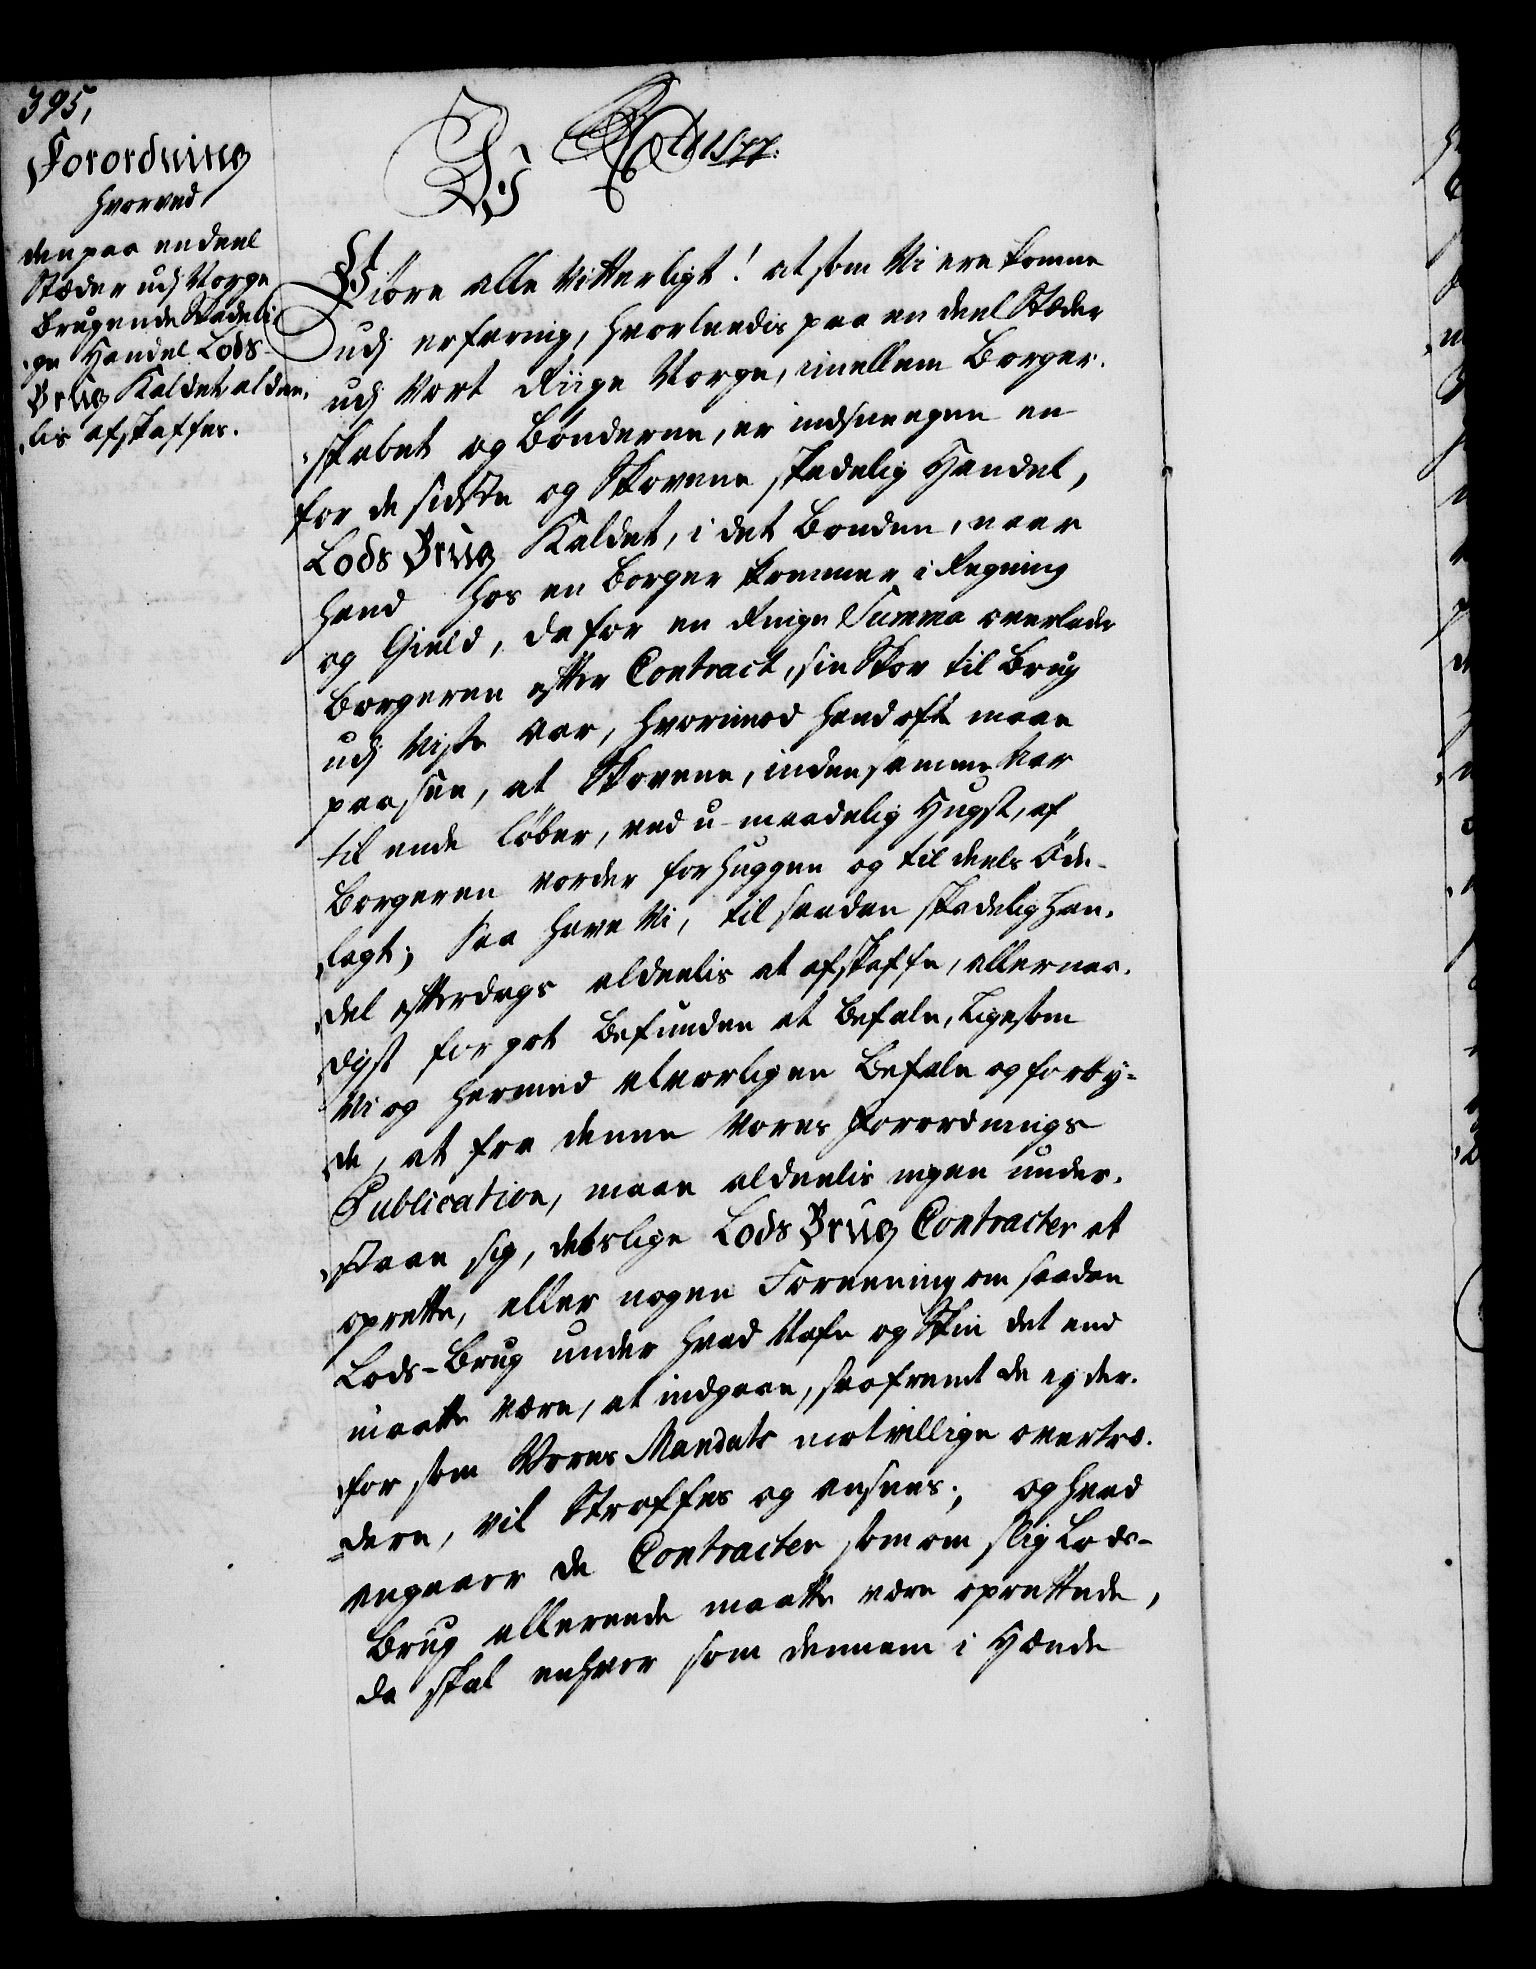 395,
Forordning
hvorved
den paa en deel
Stæder udj Norge
Brugende Skadeli-
ge Handel Lods-
Brug Kaldet aldee-
lis afskaffes.
Giøre alle Vitterligt! at som Vi ere komne
udj erfaring, hvorleedis paa en deel Stæder
udj Vort Riige Norge, imellem Borger-
skabet og Bønderne, er indsneegen en
for de sidste og Skovene skadelig Handel,
Lods Brug Kaldet, i det Bonden, naar
hand hos en Borger kommer i Regning
og Gield, da for en Ringe Summa overlader
Borgeren efter Contract, sin Skov til Brug
udj Visse Aar, hvorimod hand oft maae
paasee, at Skovene, inden samme Aar
til ende løber, ved u-maadelig Hugst, af
Borgeren vorder forhuggen og til deels Øde-
lagt; Saa have Vi, til saadan skadelig Han-
del efterdags aldeelis at afskaffe, allernaa-
digst for got befunden at befale, Ligesom
Vi og hermed alvorligen Befale og forby-
de, at fra denne Vores Forordnings
Publication, maae aldeelis ingen under-
staae sig, deslige Lods Brug Contracter at
oprette, eller nogen Foreening om saadan
Lods-Brug under hvad Nafn og Skin det end
maatte være, at indgaae, saafremt de ej der-
for som Vores Mandats motvillige overtræ-
dere, vil Straffes og ansees; og hvad
angaaer de Contracter som om slig Lods-
Brug allereede maatte være oprettede,
da skal enhver som dennem i Hænde